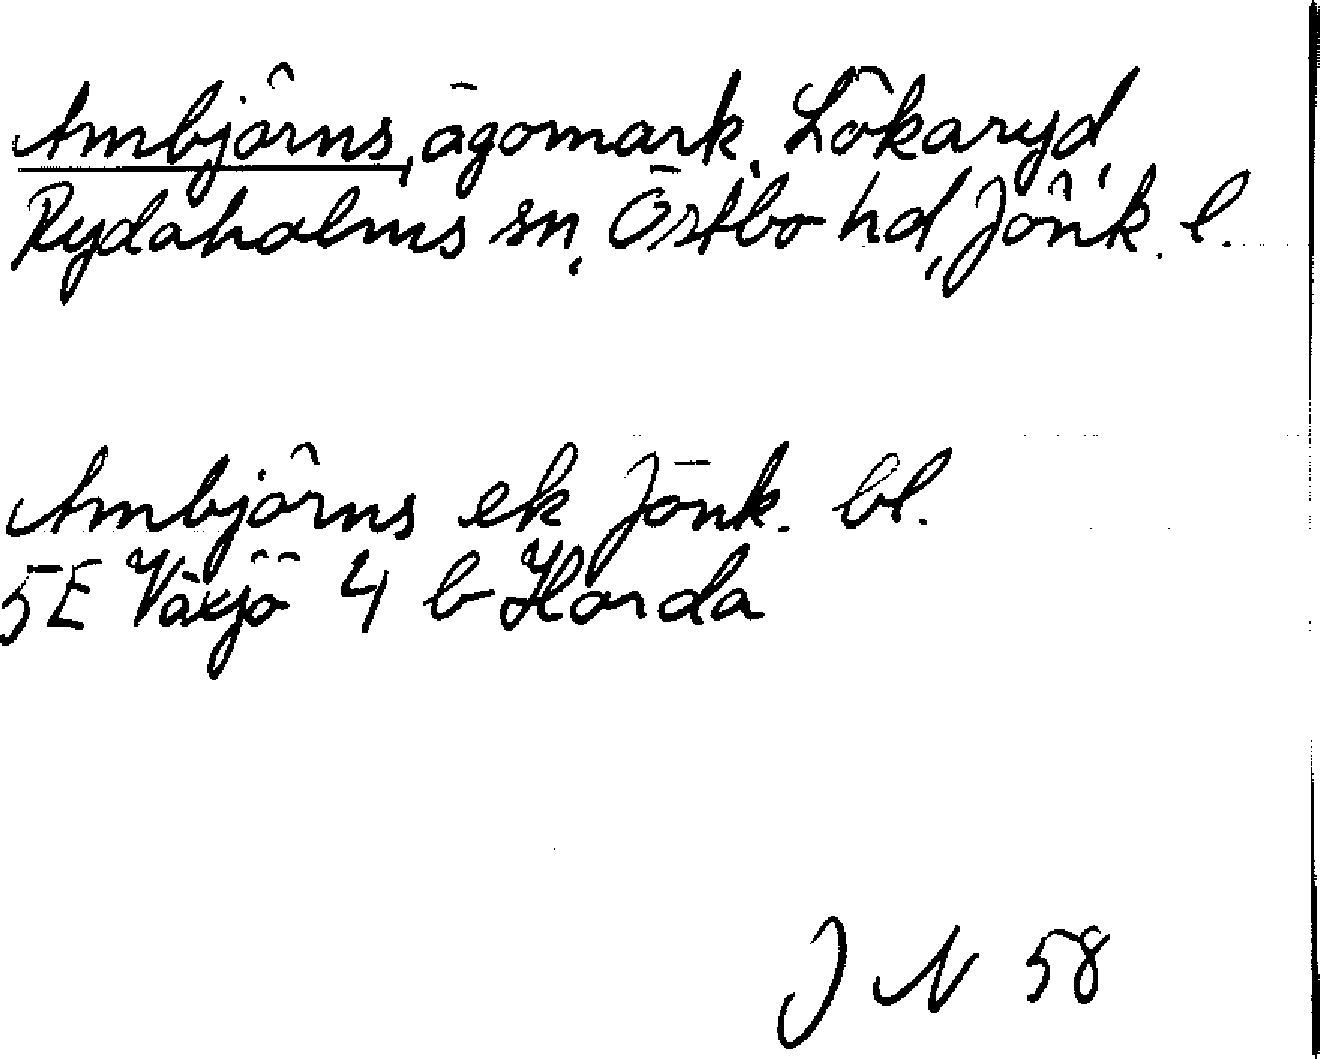 Ambjörns, ägomark. Lökaryd,
Rydaholms sn, Östbo hd, Jönk. l.
Ambjörns ek Jönk. bl.
5E Växjö 4 b Horda
J N 58